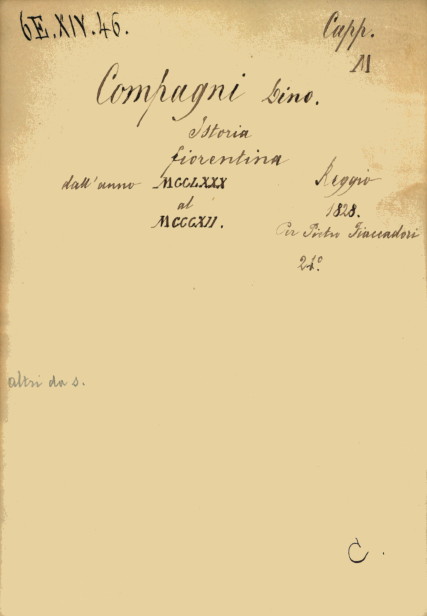 6E.XIV.46.
Capp.
M
Compagni Dino.
Istoria
fiorentina
dall'anno MCCLXXX
al
MCCCXII.
Reggio
1828.
Per Pietro Fiaccadori
24º.
altri da s.
C.